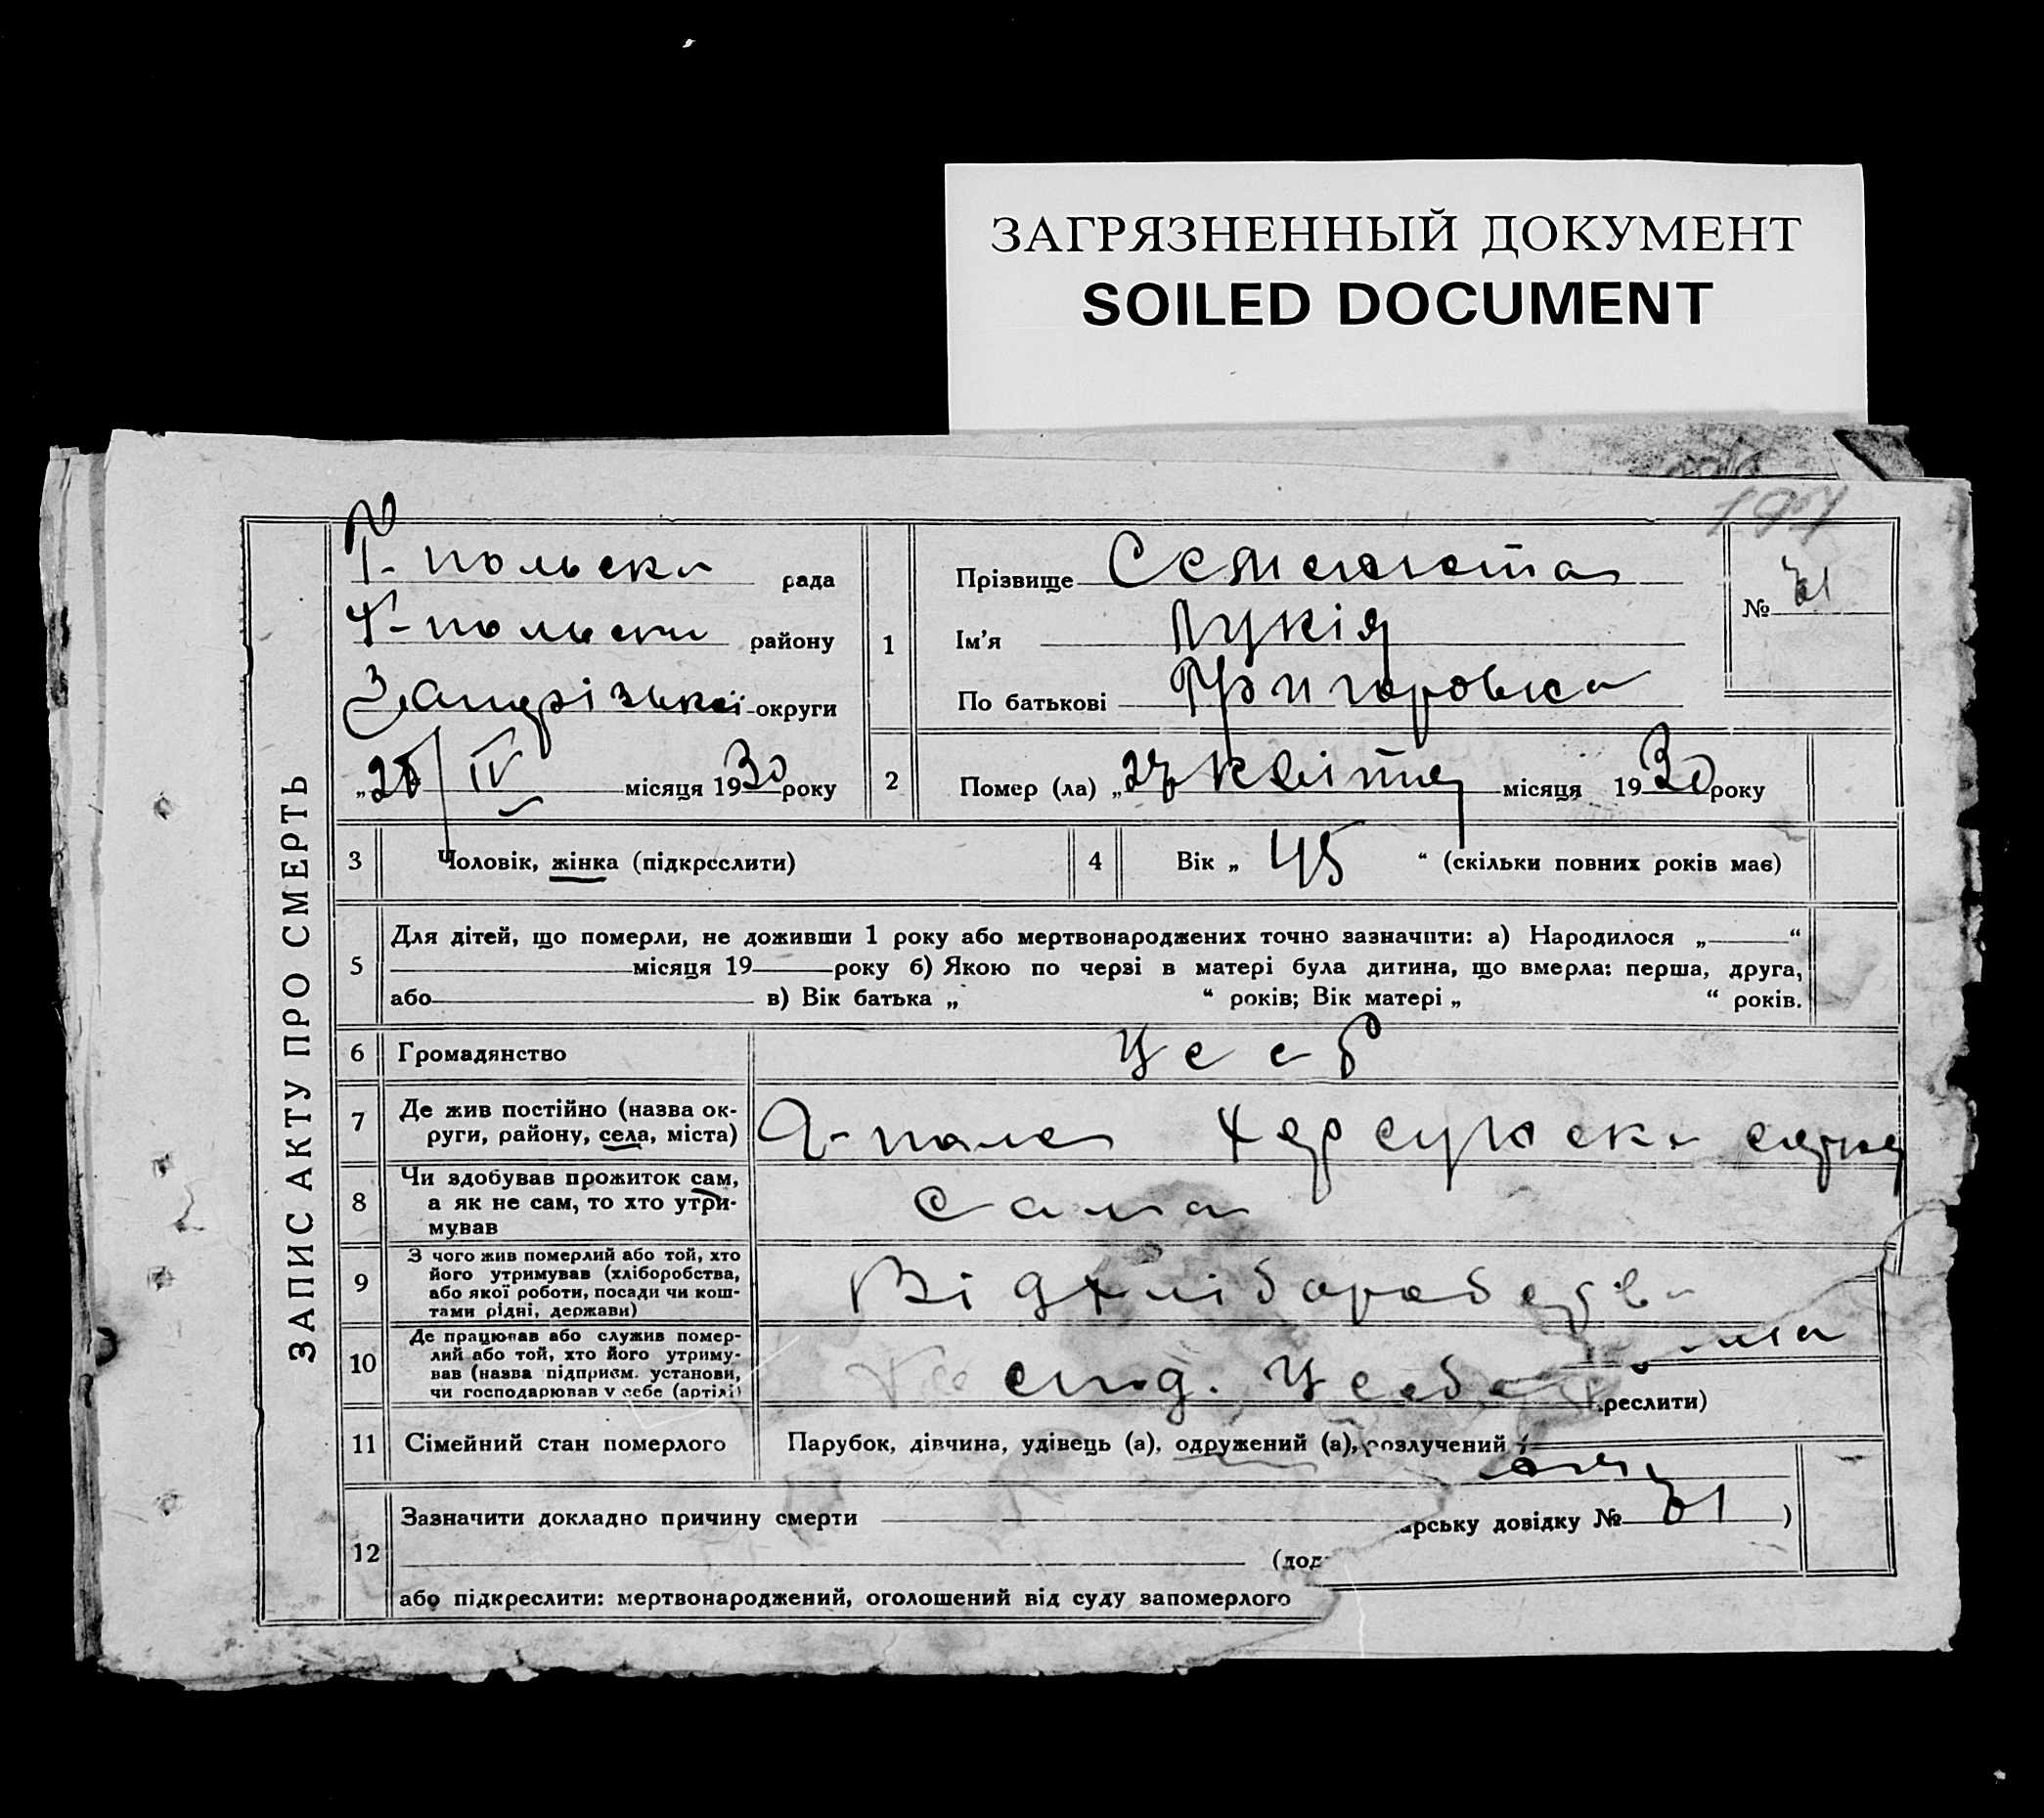 ЗАГРЯЗНЕННЫЙ ДОКУМЕНТ
SOILED DOCUMENT
ЗАПИС АКТУ ПРО СМЕРТЬ
Г-польська рада
Г-польськи району
Запорізької округи
„28/IV місяця 1930 року
1
Прізвище Семенюта
Ім'я Лукія
По батькові Григоровна
№ 31
2
Помер (ла) „27 квітня місяця 1930 року
3 Чоловік, жінка (підкреслити)
4 Вік „45“ (скільки повних років має)
5 Для дітей, що померли, не доживши 1 року або мертвонароджених точно зазначити: а) Народилося „ “
місяця 19 року б) Якою по черзі в матері була дитина, що вмерла: перша, друга,
або в) Вік батька „ “ років; Вік матері „ “ років.
6 Громадянство УССР
7 Де жив постійно (назва ок-
руги, району, села, міста) Г-поле
8 Чи здобував прожиток сам,
а як не сам, то хто утри-
мував
сама
9 З чого жив померлий або той, хто
його утримував (хліборобства,
або якої роботи, посади чи кош-
тами рідні, держави)
Від хліборобств
10 Де працював або служив помер-
лий або той, хто його утриму-
вав (назва підприєм. установи,
чи господарював у себе (артілі)
У себе
реслити)
11 Сімейний стан померлого Парубок, дівчина, удівець (а), одружений (а), розлучений
12 Зазначити докладно причину смерти
арську довідку № 31 )
(дод
або підкреслити: мертвонароджений, оголошений від суду запомерлого